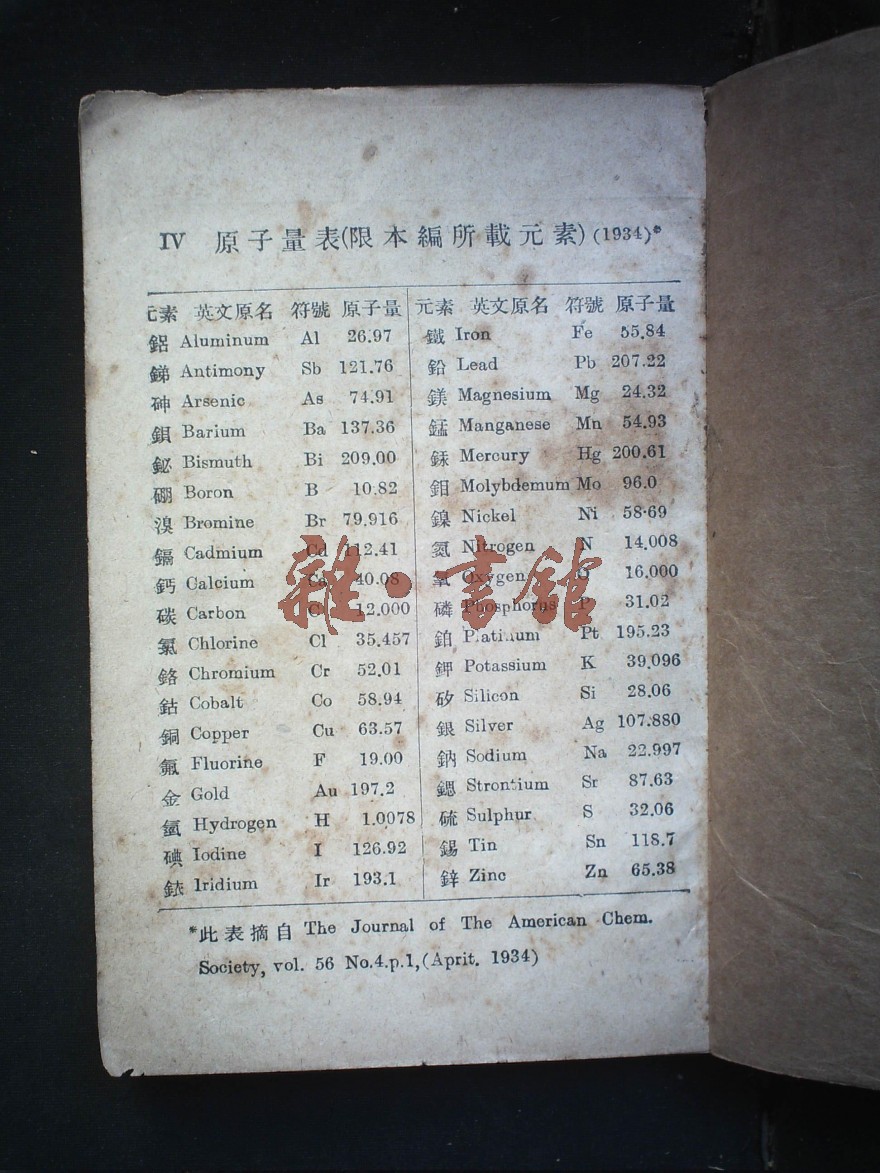 IV 原子量表(限本編所載元素)(1934)*
元素 英文原名 符號 原子量
鋁 Aluminum Al 26.97
銻 Antimony Sb 121.76
砷 Arsenic As 74.91
鋇 Barium Ba 137.36
鉍 Bismuth Bi 209.00
硼 Boron B 10.82
溴 Bromine Br 79.916
鎘 Cadmium Cd 112.41
鈣 Calcium Ca 40.08
碳 Carbon C 12.000
氯 Chlorine Cl 35.457
鉻 Chromium Cr 52.01
鈷 Cobalt Co 58.94
銅 Copper Cu 63.57
氟 Fluorine F 19.00
金 Gold Au 197.2
氫 Hydrogen H 1.0078
碘 Iodine I 126.92
銥 Iridium Ir 193.1
元素 英文原名 符號 原子量
鐵 Iron Fe 55.84
鉛 Lead Pb 207.22
鎂 Magnesium Mg 24.32
錳 Manganese Mn 54.93
銾 Mercury Hg 200.61
鉬 Molybdemum Mo 96.0
鎳 Nickel Ni 58·69
氮 Nitrogen N 14.008
氧 Oxygen O 16.000
磷 Phosphorns P 31.02
鉑 Platinum Pt 195.23
鉀 Potassium K 39.096
矽 Silicon Si 28.06
銀 Silver Ag 107.880
鈉 Sodium Na 22.997
鍶 Strontium Sr 87.63
硫 Sulphur S 32.06
錫 Tin Sn 118.7
鋅 Zinc Zn 65.38
*此表摘自 The Journal of The American Chem.
Society, vol. 56 No.4.p.1,(Aprit. 1934)
雜·書館